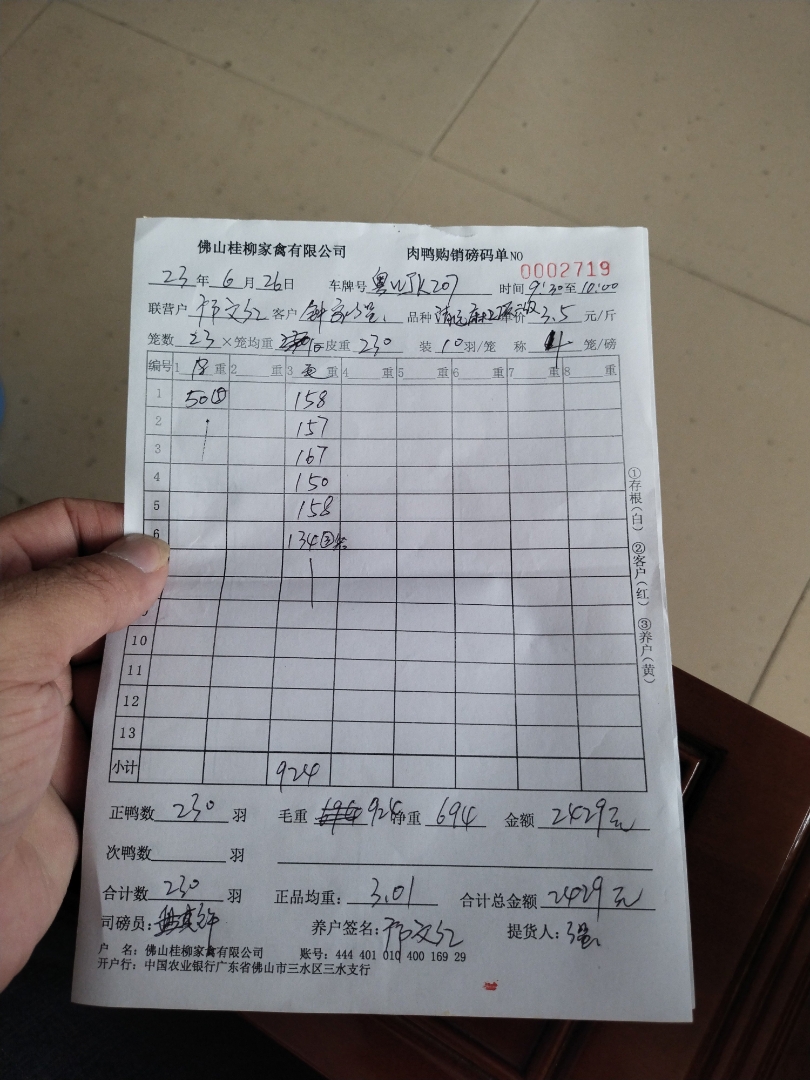 佛山桂柳家禽有限公司 肉鸭购销磅码单NO 0002719
23年6月26日 车牌号粤 时间9:30至10:00
联营户 客户 品种 单价3.5元/斤
笼数23×笼均重 皮重230 装10羽/笼 称4笼/磅
编号 1 重 2 重 3 重 4 重 5 重 6 重 7 重 8 重
1 50 158
2 157
3 167
4 150
5 158
6 134③笼
10
11
12
13
小计 924
正鸭数230羽 毛重924 净重694 金额2429元
次鸭数 羽
合计数230羽 正品均重:3.01 合计总金额2429元
司磅员: 养户签名: 提货人:强
户 名:佛山桂柳家禽有限公司 账号:444 401 010 400 169 29
开户行:中国农业银行广东省佛山市三水区三水支行
①存根(白) ②客户(红) ③养户(黄)